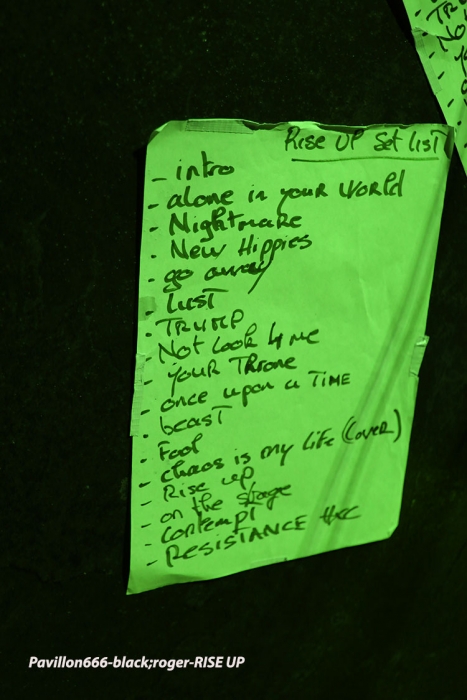 Rise UP Set list
- intro
- alone in your world
- Nightmare
- New Hippies
- go away
- Lust
- TRUMP
- Not Look 4 me
- your Throne
- once upon a Time
- beast
- Fool
- chaos is my Life (cover)
- Rise up
- on the stage
- contempt
- RESISTANCE HxC
Pavillon666-black;roger-RISE UP